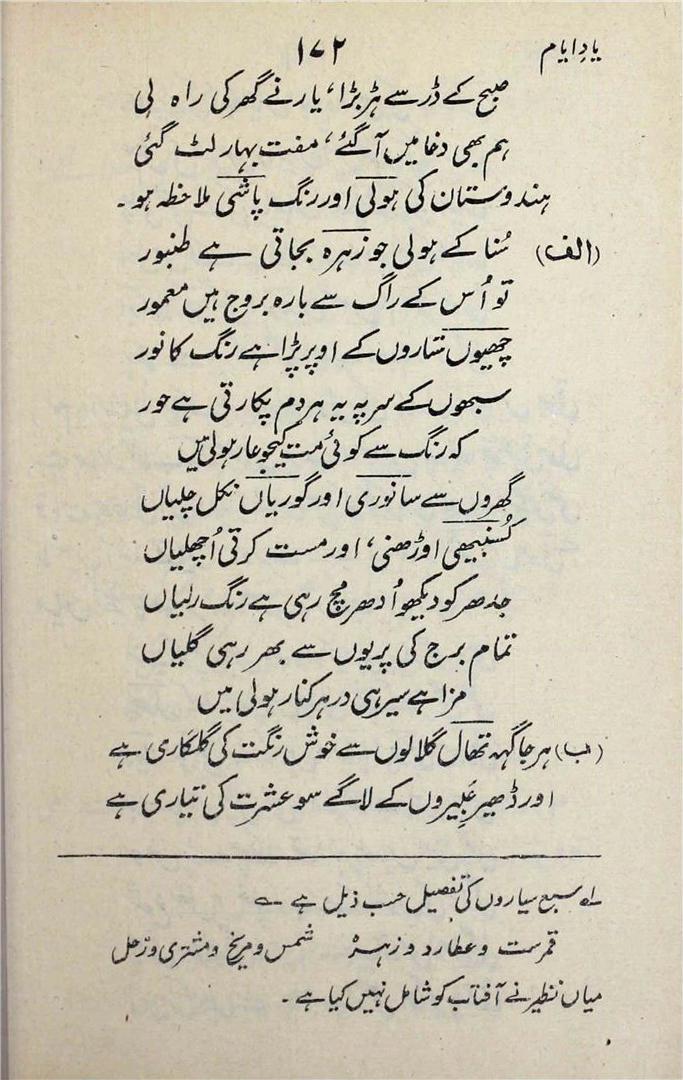 یادِ ایام
۱۷۲
صبح کے ڈر سے ہڑبڑا، یار نے گھر کی راہ لی
ہم بھی دغا میں آ گئے، مفت بہار لٹ گئی
ہندوستان کی ہولی اور رنگ پاشی ملاحظہ ہو۔
(الف) سُنا کے ہولی جو زہرہ بجاتی ہے طنبور
تو اُس کے راگ سے بارہ بروج ہیں معمور
چھیوں ستاروں کے اوپر پڑا ہے رنگ کا نور
سبھوں کے سر پہ یہ ہر دم پکارتی ہے حور
کہ رنگ سے کوئی مت کیجو عار ہولی میں
گھروں سے سانوری اور گوریاں نکل چلیاں
کُسنبھی اوڑھنی، اور مست کرتی اُچھلیاں
جدھر کو دیکھو اُدھر مچ رہی ہے رنگ رلیاں
تمام برج کی پریوں سے بھر رہی گلیاں
مزا ہے سیر ہی در ہر کنار ہولی میں
(ب) ہر جاگہہ تھال گلالوں سے خوش رنگت کی گلکاری ہے
اور ڈھیر عَبِیروں کے لاگے سو عشرت کی تیاری ہے
لہ سبع سیاروں کی تفصیل حسب ذیل ہے ۔
قمرست و عطارد و زہرہ شمس و مریخ و مشتری و زحل
میاں نظیر نے آفتاب کو شامل نہیں کیا ہے ۔